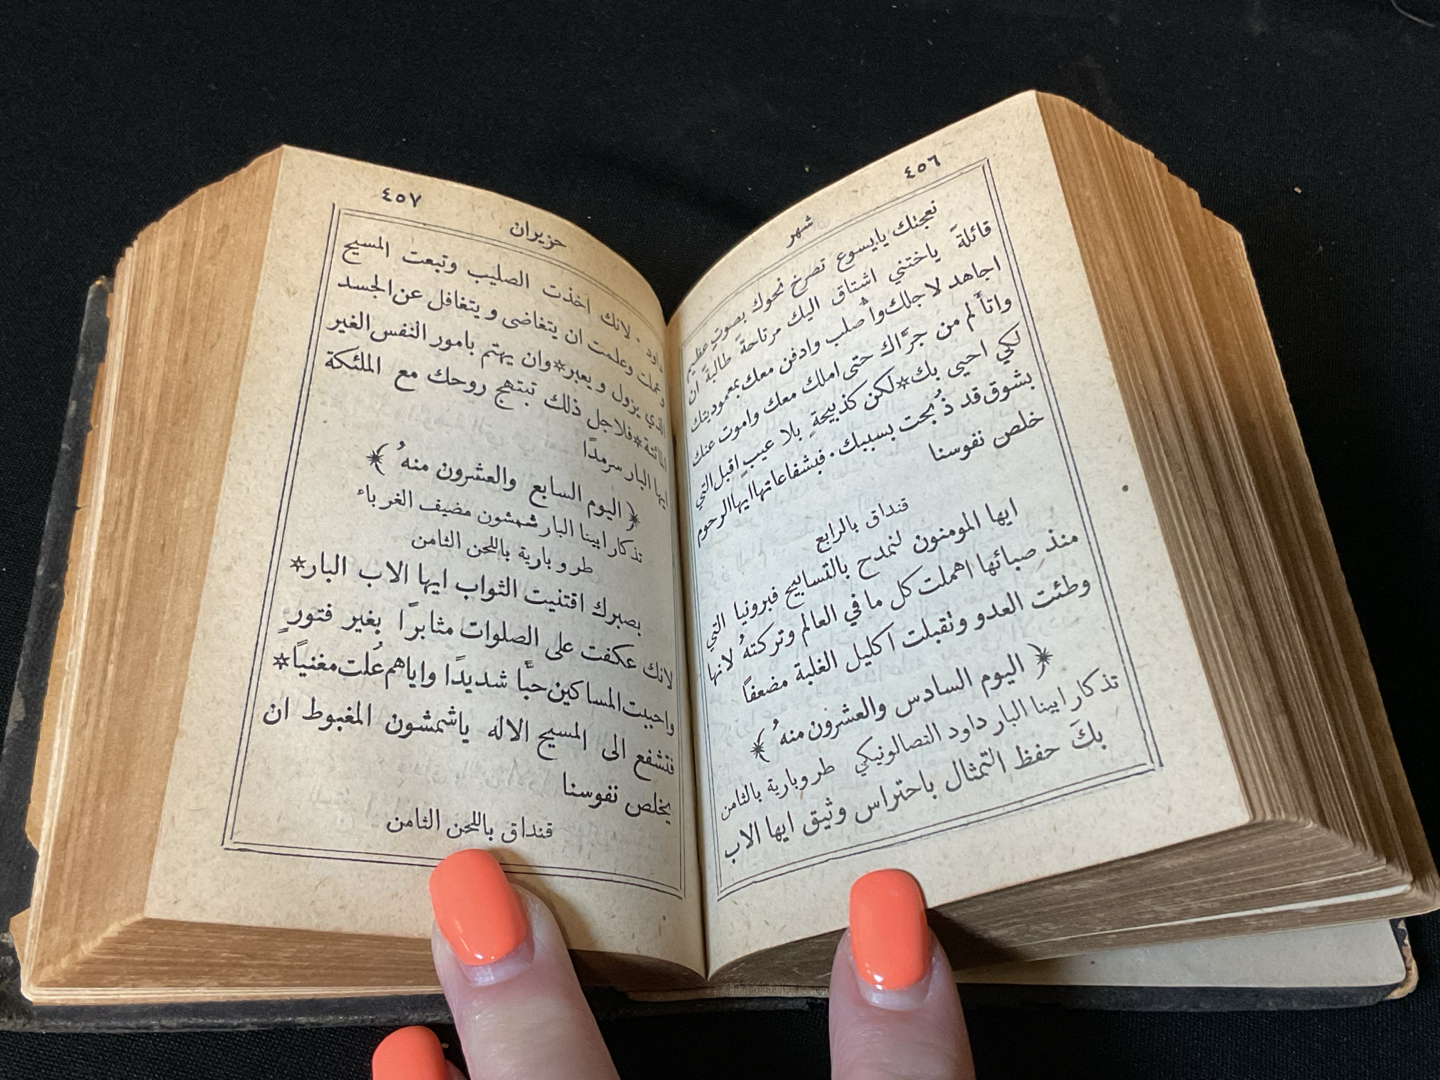 ٤٥٦
شهر
نعجتك يا يسوع تصرخ نحوك بصوتٍ عظيم
قائلةً ياختني اشتاق اليك مرتاحةً طالبة ان
اجاهد لاجلك وأُصلب وادفن معك بمعموديتك
واتألم من جرَّاك حتى املك معك واموت عنك
لكي احيى بك* لكن كذبيحةٍ بلا عيبٍ اقبل التي
بشوق قد ذُبحت بسببك · فبشفاعاتها ايها الرحوم
خلص نفوسنا
قنداق بالرابع
ايها المومنون لنمدح بالتسابيح فبرونيا التي
منذ صبائها اهملت كل ما في العالم وتركتهُ لانها
وطئت العدو ونقبلت اكليل الغلبة مضعفاً
﴿ اليوم السادس والعشرون منهُ ﴾
تذكار ابينا البار داود التصالونيكي طروبارية بالثامن
بكَ حفظ التمثال باحتراس وثيق ايها الاب
٤٥٧
حزيران
داود · لانك اخذت الصليب وتبعت المسيح
وعملت وعلمت ان يتغاضى ويتغافل عن الجسد
الذي يزول ويعبر* وان يهتم بامور النفس الغير
المائتة* فلاجل ذلك تبتهج روحك مع الملئكة
ايها البار سرمدًا
﴿ اليوم السابع والعشرون منهُ ﴾
تذكار ابينا البار شمشون مضيف الغرباء
طروبارية باللحن الثامن
بصبرك اقتنيت الثواب ايها الاب البار*
لانك عكفت على الصلوات مثابرًا بغير فتورٍ
واحببت المساكين حبًّا شديدًا واياهم عُلت مغنياً*
فتشفع الى المسيح الاله ياشمشون المغبوط ان
يخلص نفوسنا
قنداق باللحن الثامن